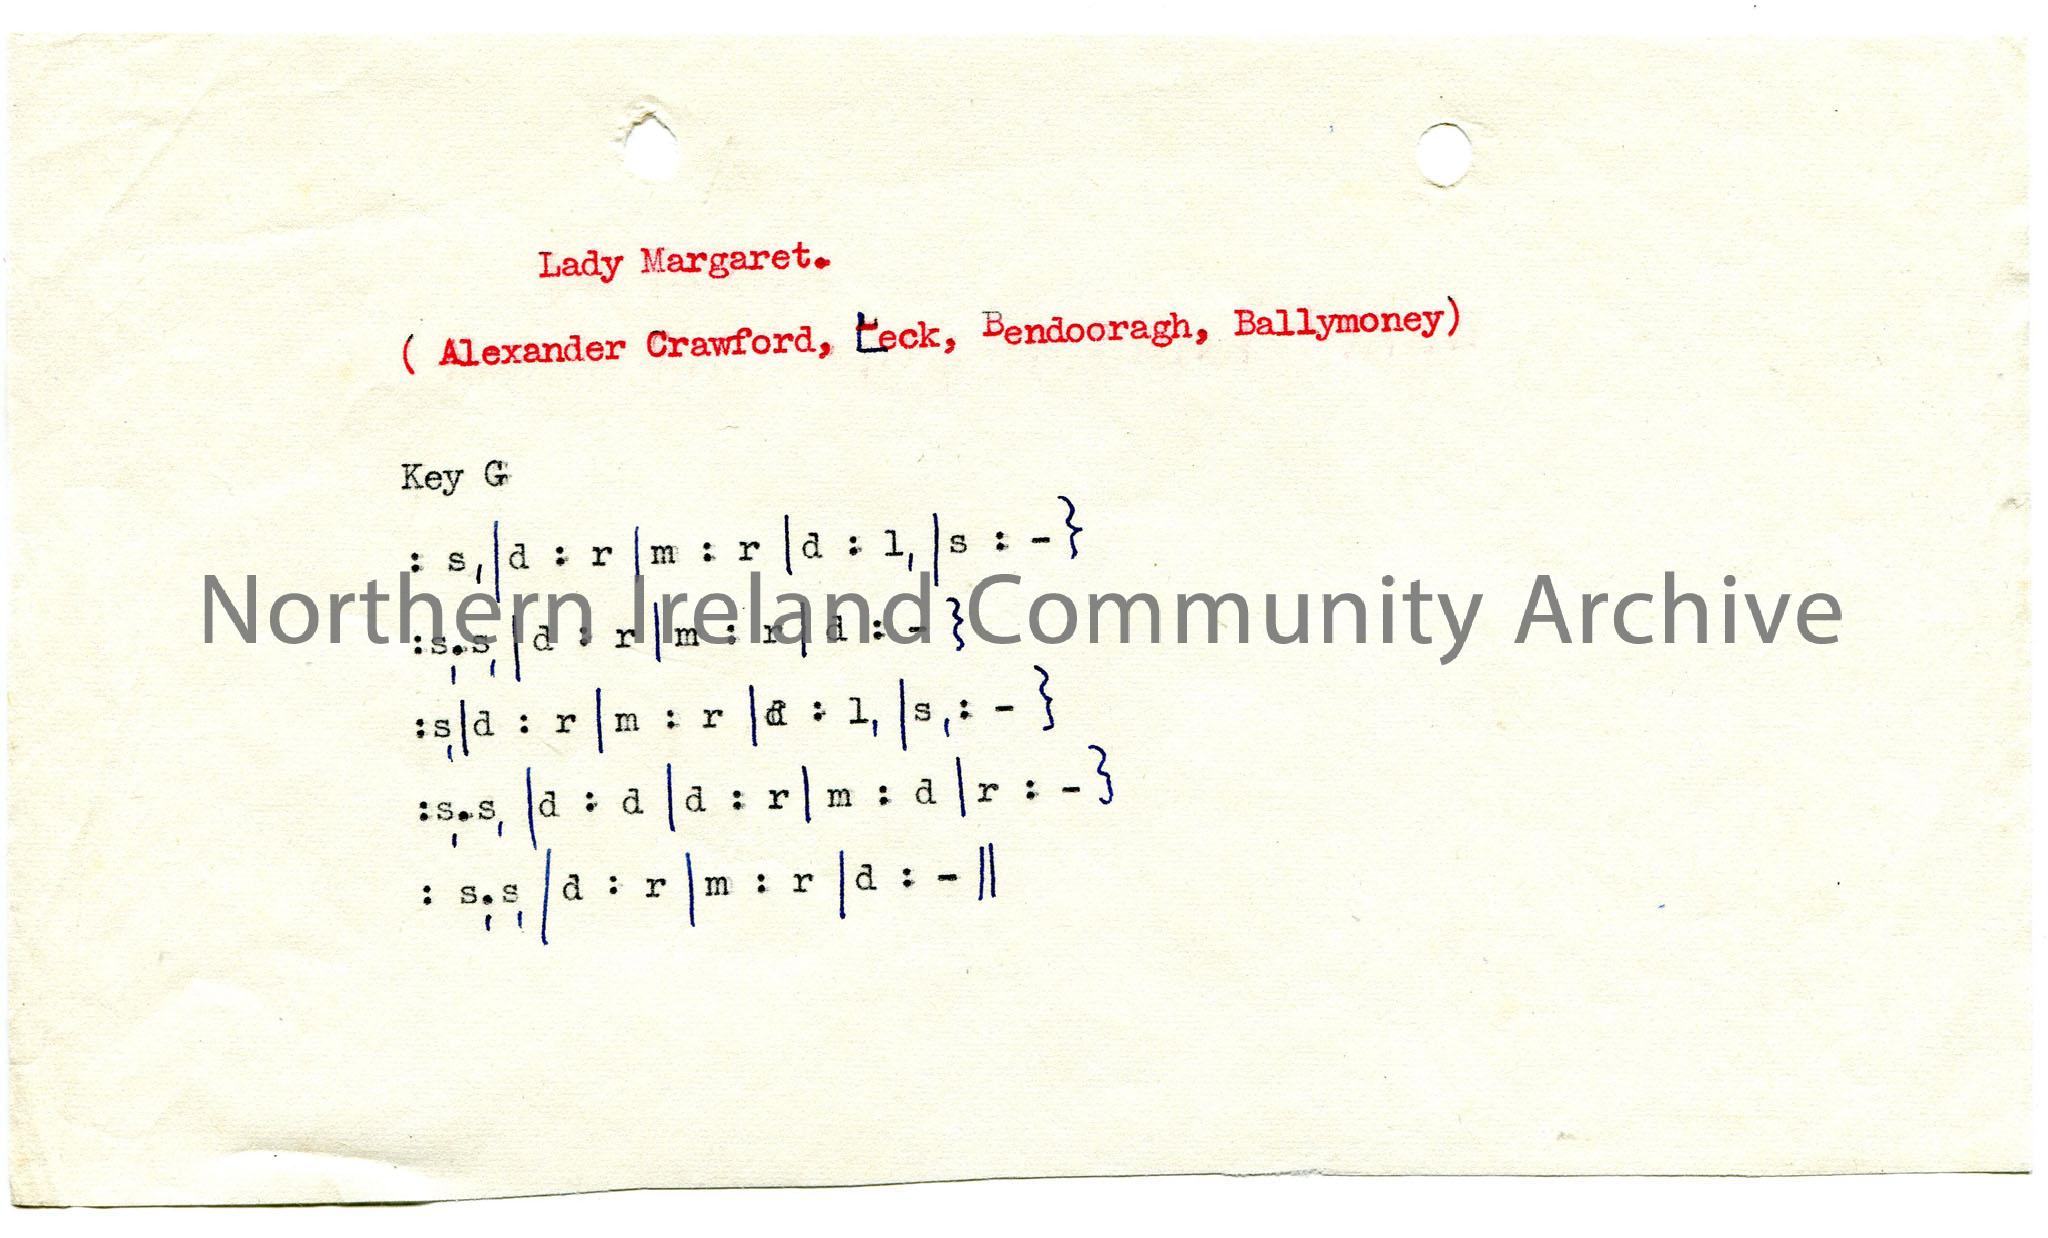 Lady Margaret.
( Alexander Crawford, Leck, Bendooragh, Ballymoney)
Key G
: s,|d : r|m : r|d : l,|s : -}
Northern Ireland Community Archive
:s,.s,|d : r|m : r|d : -}
:s,|d : r|m : r|d : l,|s,: -}
:s,.s,|d : d|d : r|m : d|r : -}
: s,.s,|d : r|m : r|d : -||